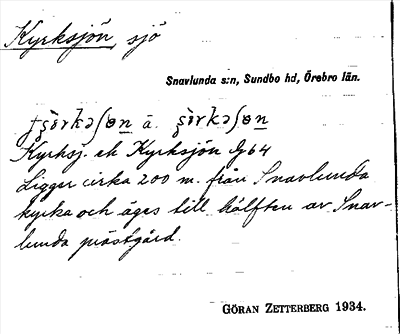 Kyrksjön, sjö
Snavlunda s:n, Sundbo hd, Örebro län.
Kyrksj. ek Kyrksjön Gg 64
Ligger cirka 200 m. från Snavlunda
kyrka och äges till hälften av Snav-
lunda prästgård.
GÖRAN ZETTERBERG 1934.